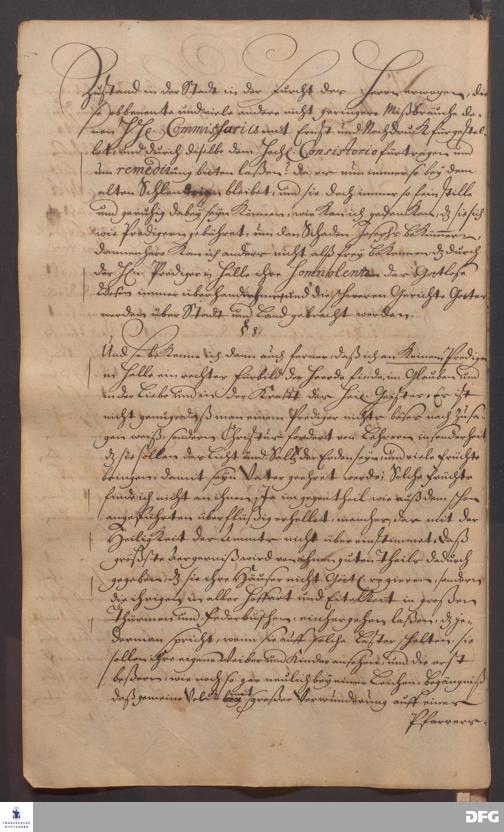 Zustand in der Stadt in der Furcht des Herrn erwogen, die
so obbenente und viele andere nicht geringere Mißbräuche de-
nen Commissariis mit Ernst und Nachdruck fürgestel-
let, und durch dieselbe dem Consistorio fürtragen und
um remedirung bitten laßen? da es nun immer so bey dem
alten Schlendrian bleibet, und sie doch immer so fein stille
und geruhig dabey seyn können, wie kan ich gedencken, dz sie sich
wie Predigern gebühret, um den Schaden Josephs bekümmern
dannenhero kan ich anders nicht alß frey bekennen, dz durch
der Prediger in Halle ihre Somnolentz das Gottlose
Wesen immer überhand nehme und die schweren Gerichte Gottes
werden über Stadt und Land gebracht werden.
§ 8.
Und so bekenne ich dann auch ferner, daß ich an keinem Prediger
in Halle ein rechtes Fürbild der Heerde finde, im Glauben und
in der Liebe und in der Krafft des Geistes, Es ist
nicht genug, daß man einem Prediger nichts böses nach zusa-
gen weiß, sondern Christus fordert von Lehrern insonderheit
dz sie sollen das Licht und Saltz der Erden seyn und viele Früchte
bringen, damit sein Vater geehret werde; Solche Früchte
finde ich nicht an ihnen, Ja im gegentheil wie auß dem schon
angeführten überflüßig erhellet, manches, das mit der
Heiligkeit des Amts nicht übereinstimmet, daß
größste Aergerniß wird von ihnen guten Theils dadurch
gegeben, dz sie ihre Häuser nicht regieren, sondern
die ihrigen in aller Hoffart und Eitelkeit in großen
Thürmen und Federbüschen, einhergehen laßen, dz je-
derman spricht, wenn sie auff solche Laster schelten, sie
sollen ihre eigene Weiber und Kinder ansehen, und die erst
beßern, wie noch so gar neulich bey einer Leichen begängniß
daß gemeine Volck mit großer Verwunderung auff eines
Pfarrers
FRANCKESCHE STIFTUNGEN
DFG